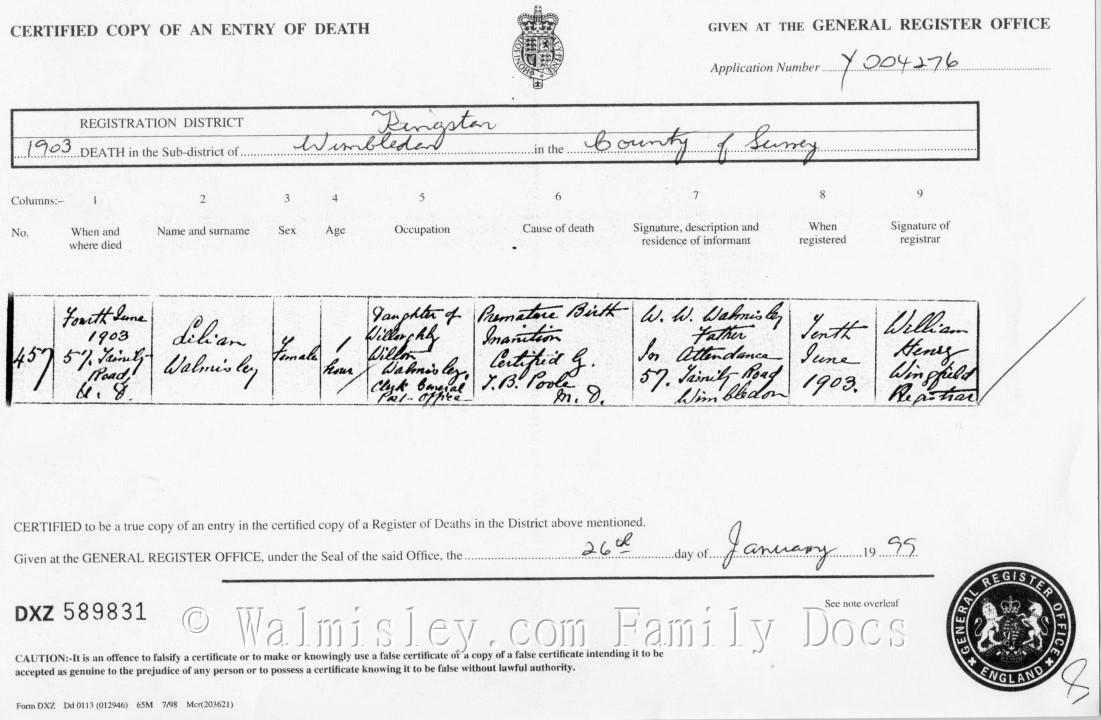 CERTIFIED COPY OF AN ENTRY OF DEATH
GIVEN AT THE GENERAL REGISTER OFFICE
Application Number Y004276
REGISTRATION DISTRICT Kingston
1903 DEATH in the Sub-district of Wimbledon in the County of Surrey
Columns:- 1 2 3 4 5 6 7 8 9
No. When and where died Name and surname Sex Age Occupation Cause of death Signature, description and residence of informant When registered Signature of registrar
457
Fourth June
1903
57, Trinity
Road,
U. D.
Lilian
Walmisley
Female
1
hour
Daughter of
Willoughby
Willon
Walmisley,
Clerk General
Post-Office
Premature Birth
Inanition
Certified by
T. B. Poole
M. D.
W. W. Walmisley
Father
In Attendance
57. Trinity Road
Wimbledon
Tenth
June
1903.
William
Henry
Wingfield
Registrar
CERTIFIED to be a true copy of an entry in the certified copy of a Register of Deaths in the District above mentioned.
Given at the GENERAL REGISTER OFFICE, under the Seal of the said Office, the 26th day of January 19 99
See note overleaf
DXZ 589831
© Walmisley.com Family Docs
GENERAL REGISTER OFFICE
ENGLAND
CAUTION:-It is an offence to falsify a certificate or to make or knowingly use a false certificate or a copy of a false certificate intending it to be
accepted as genuine to the prejudice of any person or to possess a certificate knowing it to be false without lawful authority.
Form DXZ Dd 0113 (012946) 65M 7/98 Mcr(203621)